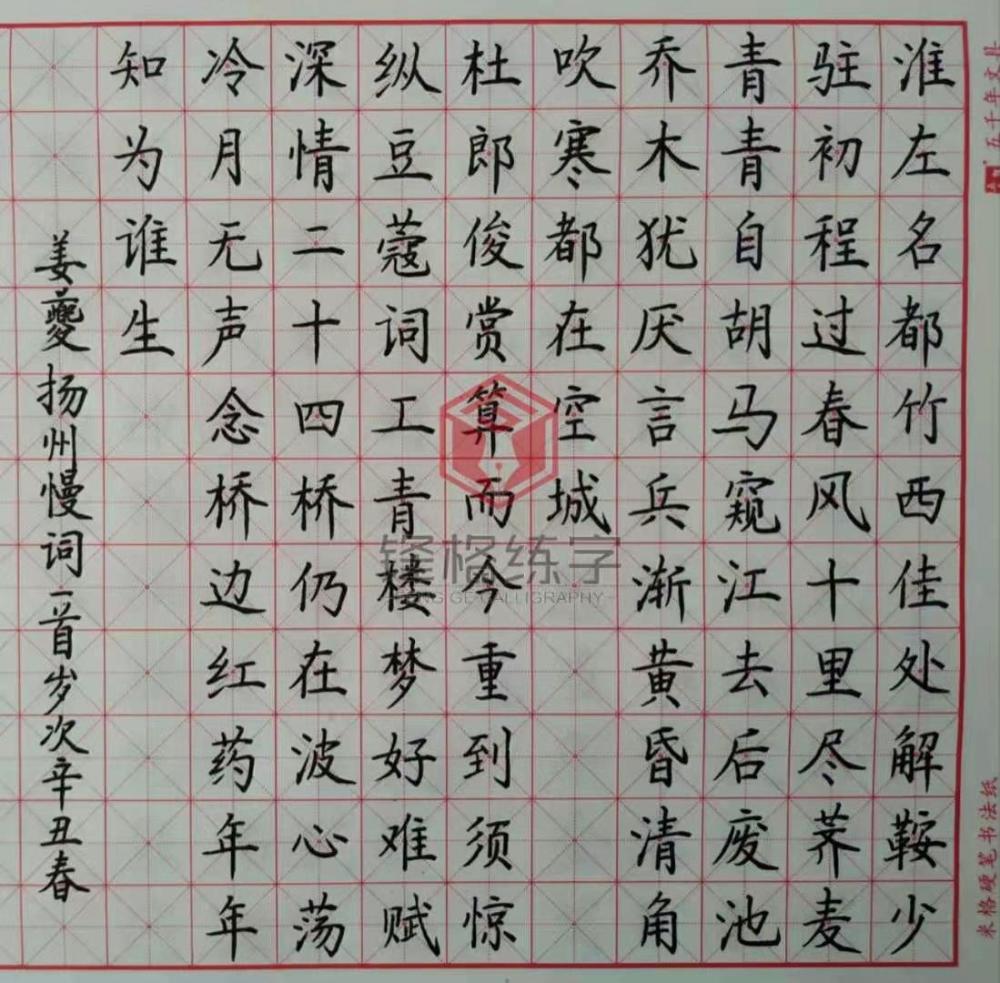 淮左名都竹西佳处解鞍少
驻初程过春风十里尽荠麦
青青自胡马窥江去后废池
乔木犹厌言兵渐黄昏清角
吹寒都在空城
杜郎俊赏算而今重到须惊
纵豆蔻词工青楼梦好难赋
深情二十四桥仍在波心荡
冷月无声念桥边红药年年
知为谁生
姜夔扬州慢词一首岁次辛丑春
五千年文具
米格硬笔书法纸
锋格练字
FENG GE CALLIGRAPHY